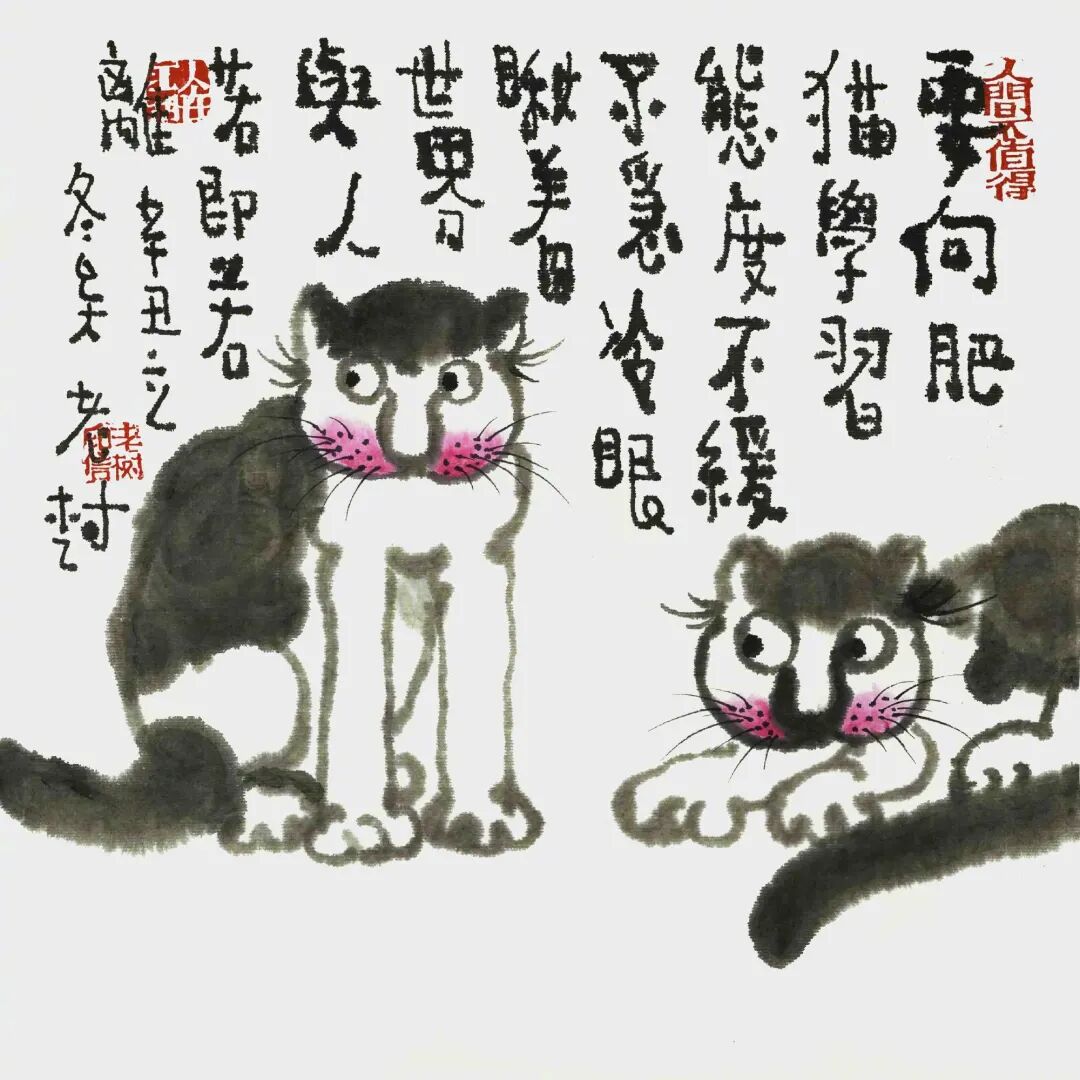 人間不值得
要向肥
猫學習
態度不緩
不急冷眼
瞅着
世界
與人
若即若
離
辛丑
冬 老树
老树